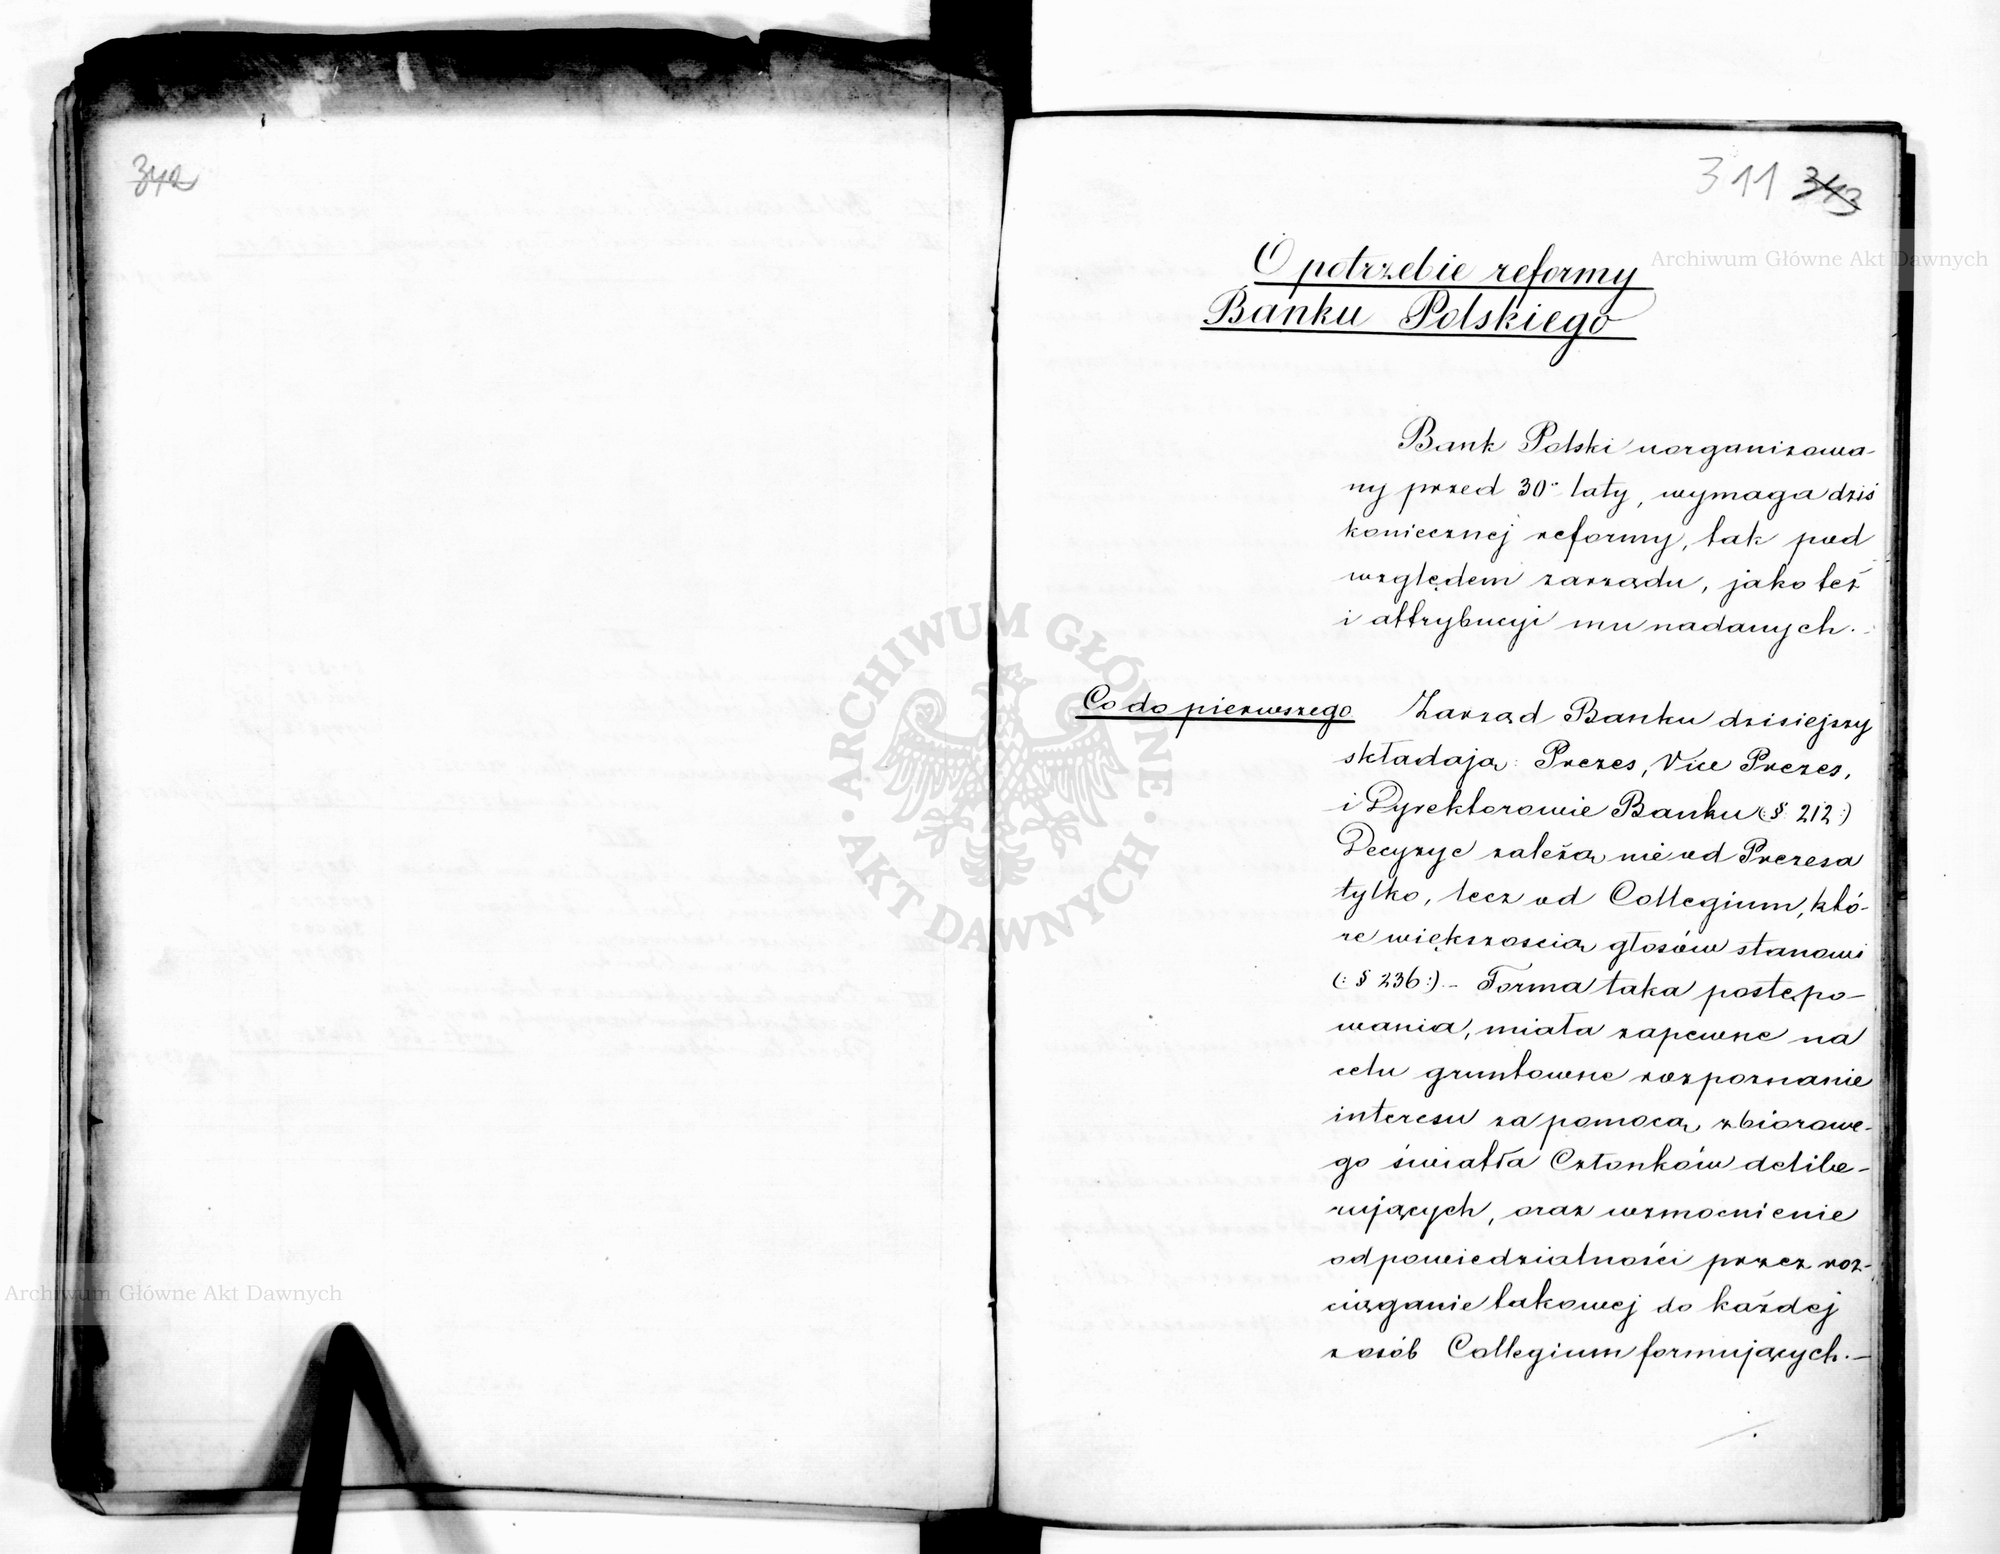 342
311 343
O potrzebie reformy
Banku Polskiego
Bank Polski uorganizowa-
ny przed 30. laty, wymaga dziś
koniecznej reformy, tak pod
względem zarządu, jako też
i attrybucyi mu nadanych.-
Co do pierwszego Zarząd Banku dzisiejszy
składają: Prezes, Vice Prezes,
i Dyrektorowie Banku (:§ 212:)
Decyzye zależą nie od Prezesa
tylko, lecz od Collegium, któ-
re większoscią głosów stanowi
(:§ 236:).- Forma taka postępo-
wania, miała zapewne na
celu gruntowne rozpoznanie
interesu za pomocą zbiorowe-
go światła Członków delibe-
rujących, oraz wzmocnienie
odpowiedzialności przez roz-
ciąganie takowej do każdej
z osób Collegium formujących.-
Archiwum Główne Akt Dawnych
Archiwum Główne Akt Dawnych
ARCHIWUM GŁÓWNE · AKT DAWNYCH ·